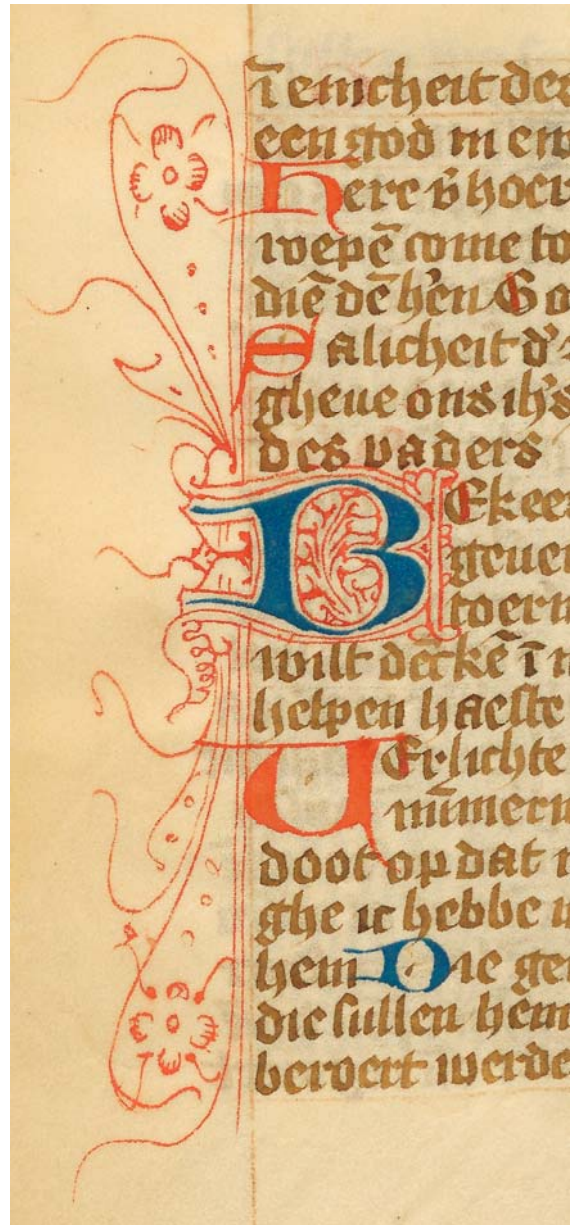 ī enicheit des
een god in ew
Here v̄hoer
roepē come to
diē dē h'en Go
Salicheit d'
gheue ons ih's
des vaders
BEkeer
geuen
toern
wilt dēckē ī m
helpen haeste
VErlichte
nūmerm
doot op dat n
ghe ic hebbe
hem Die gen
die sullen hem
beroert werde